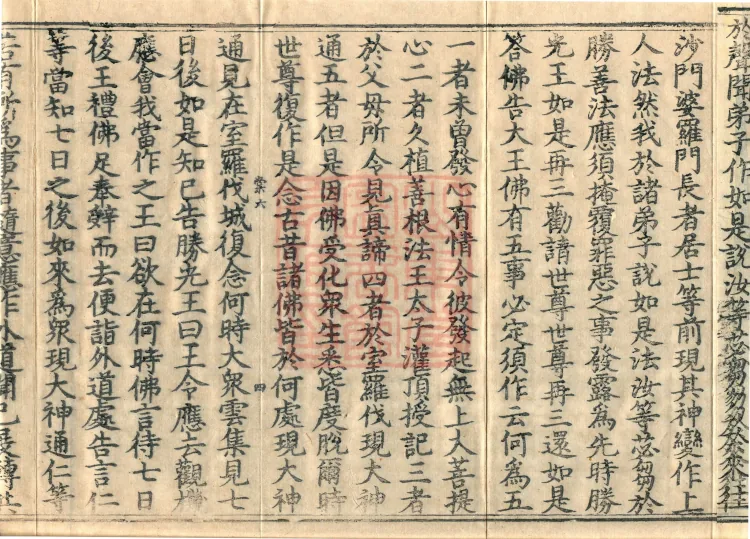 於聲聞弟子作如是說汝等苾芻勿於來往
沙門婆羅門長者居士等前現其神變作上
人法然我於諸弟子說如是法汝等苾芻於
勝善法應須掩覆罪惡之事發露為先時勝
光王如是再三勸請世尊世尊再三還如是
答佛告大王佛有五事必定須作云何為五
一者未曾發心有情令彼發起無上大菩提
心二者久植善根法王太子灌頂授記三者
於父母所令見真諦四者於室羅伐現大神
通五者但是因佛受化眾生悉皆度脫爾時
世尊復作是念古昔諸佛皆於何處現大神
棠六
四
通見在室羅伐城復念何時大眾雲集見七
日後如是知已告勝光王曰王令應去觀機
應會我當作之王曰欲在何時佛言待七日
後王禮佛足奉辞而去便詣外道處告言仁
等當知七日之後如來為眾現大神通仁等
若有所為事者隨意應作外道聞已展轉共